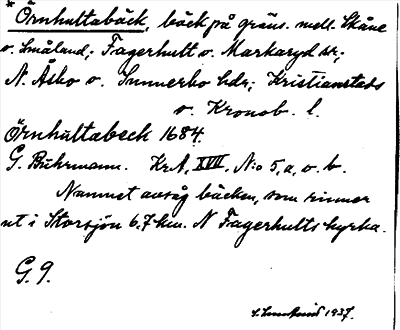 * Örnhultabäck, bäck på gräns. mell. Skåne
o. Småland; Fagerhult o. Markaryd sr;
N. Åsbo o. Sunnerbo hdr; Kristianstads
o. Kronob. l.
Örnhultabeck 1684.
G. Buhrmann. KrA, XVII, N:o 5, a, o. b.
Namnet avsåg bäcken, som rinner
ut i Storsjön 6.7 km. N Fagerhults kyrka.
G. 9.
1937.